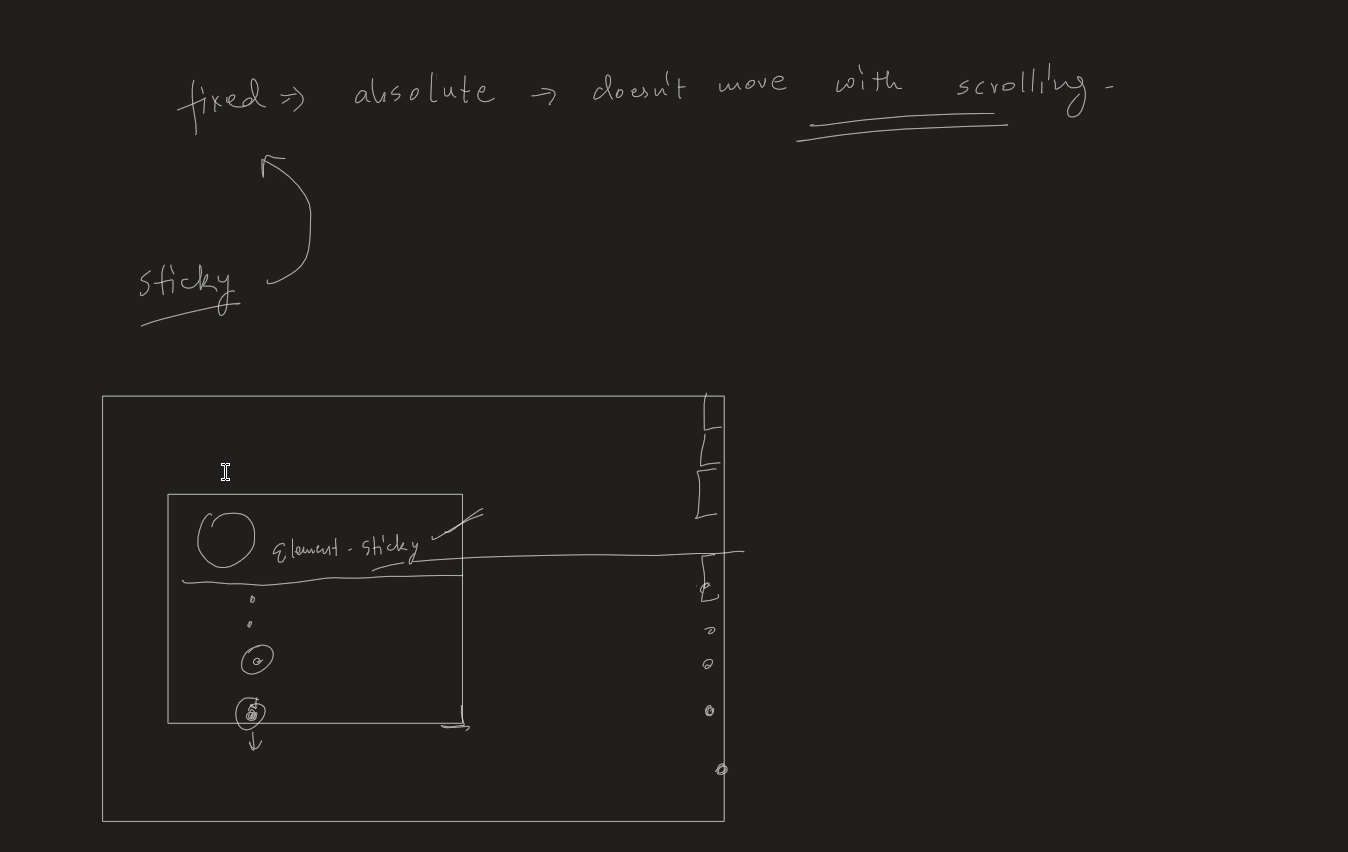 fixed => absolute → doesn't move with scrolling -
sticky
Element - Sticky